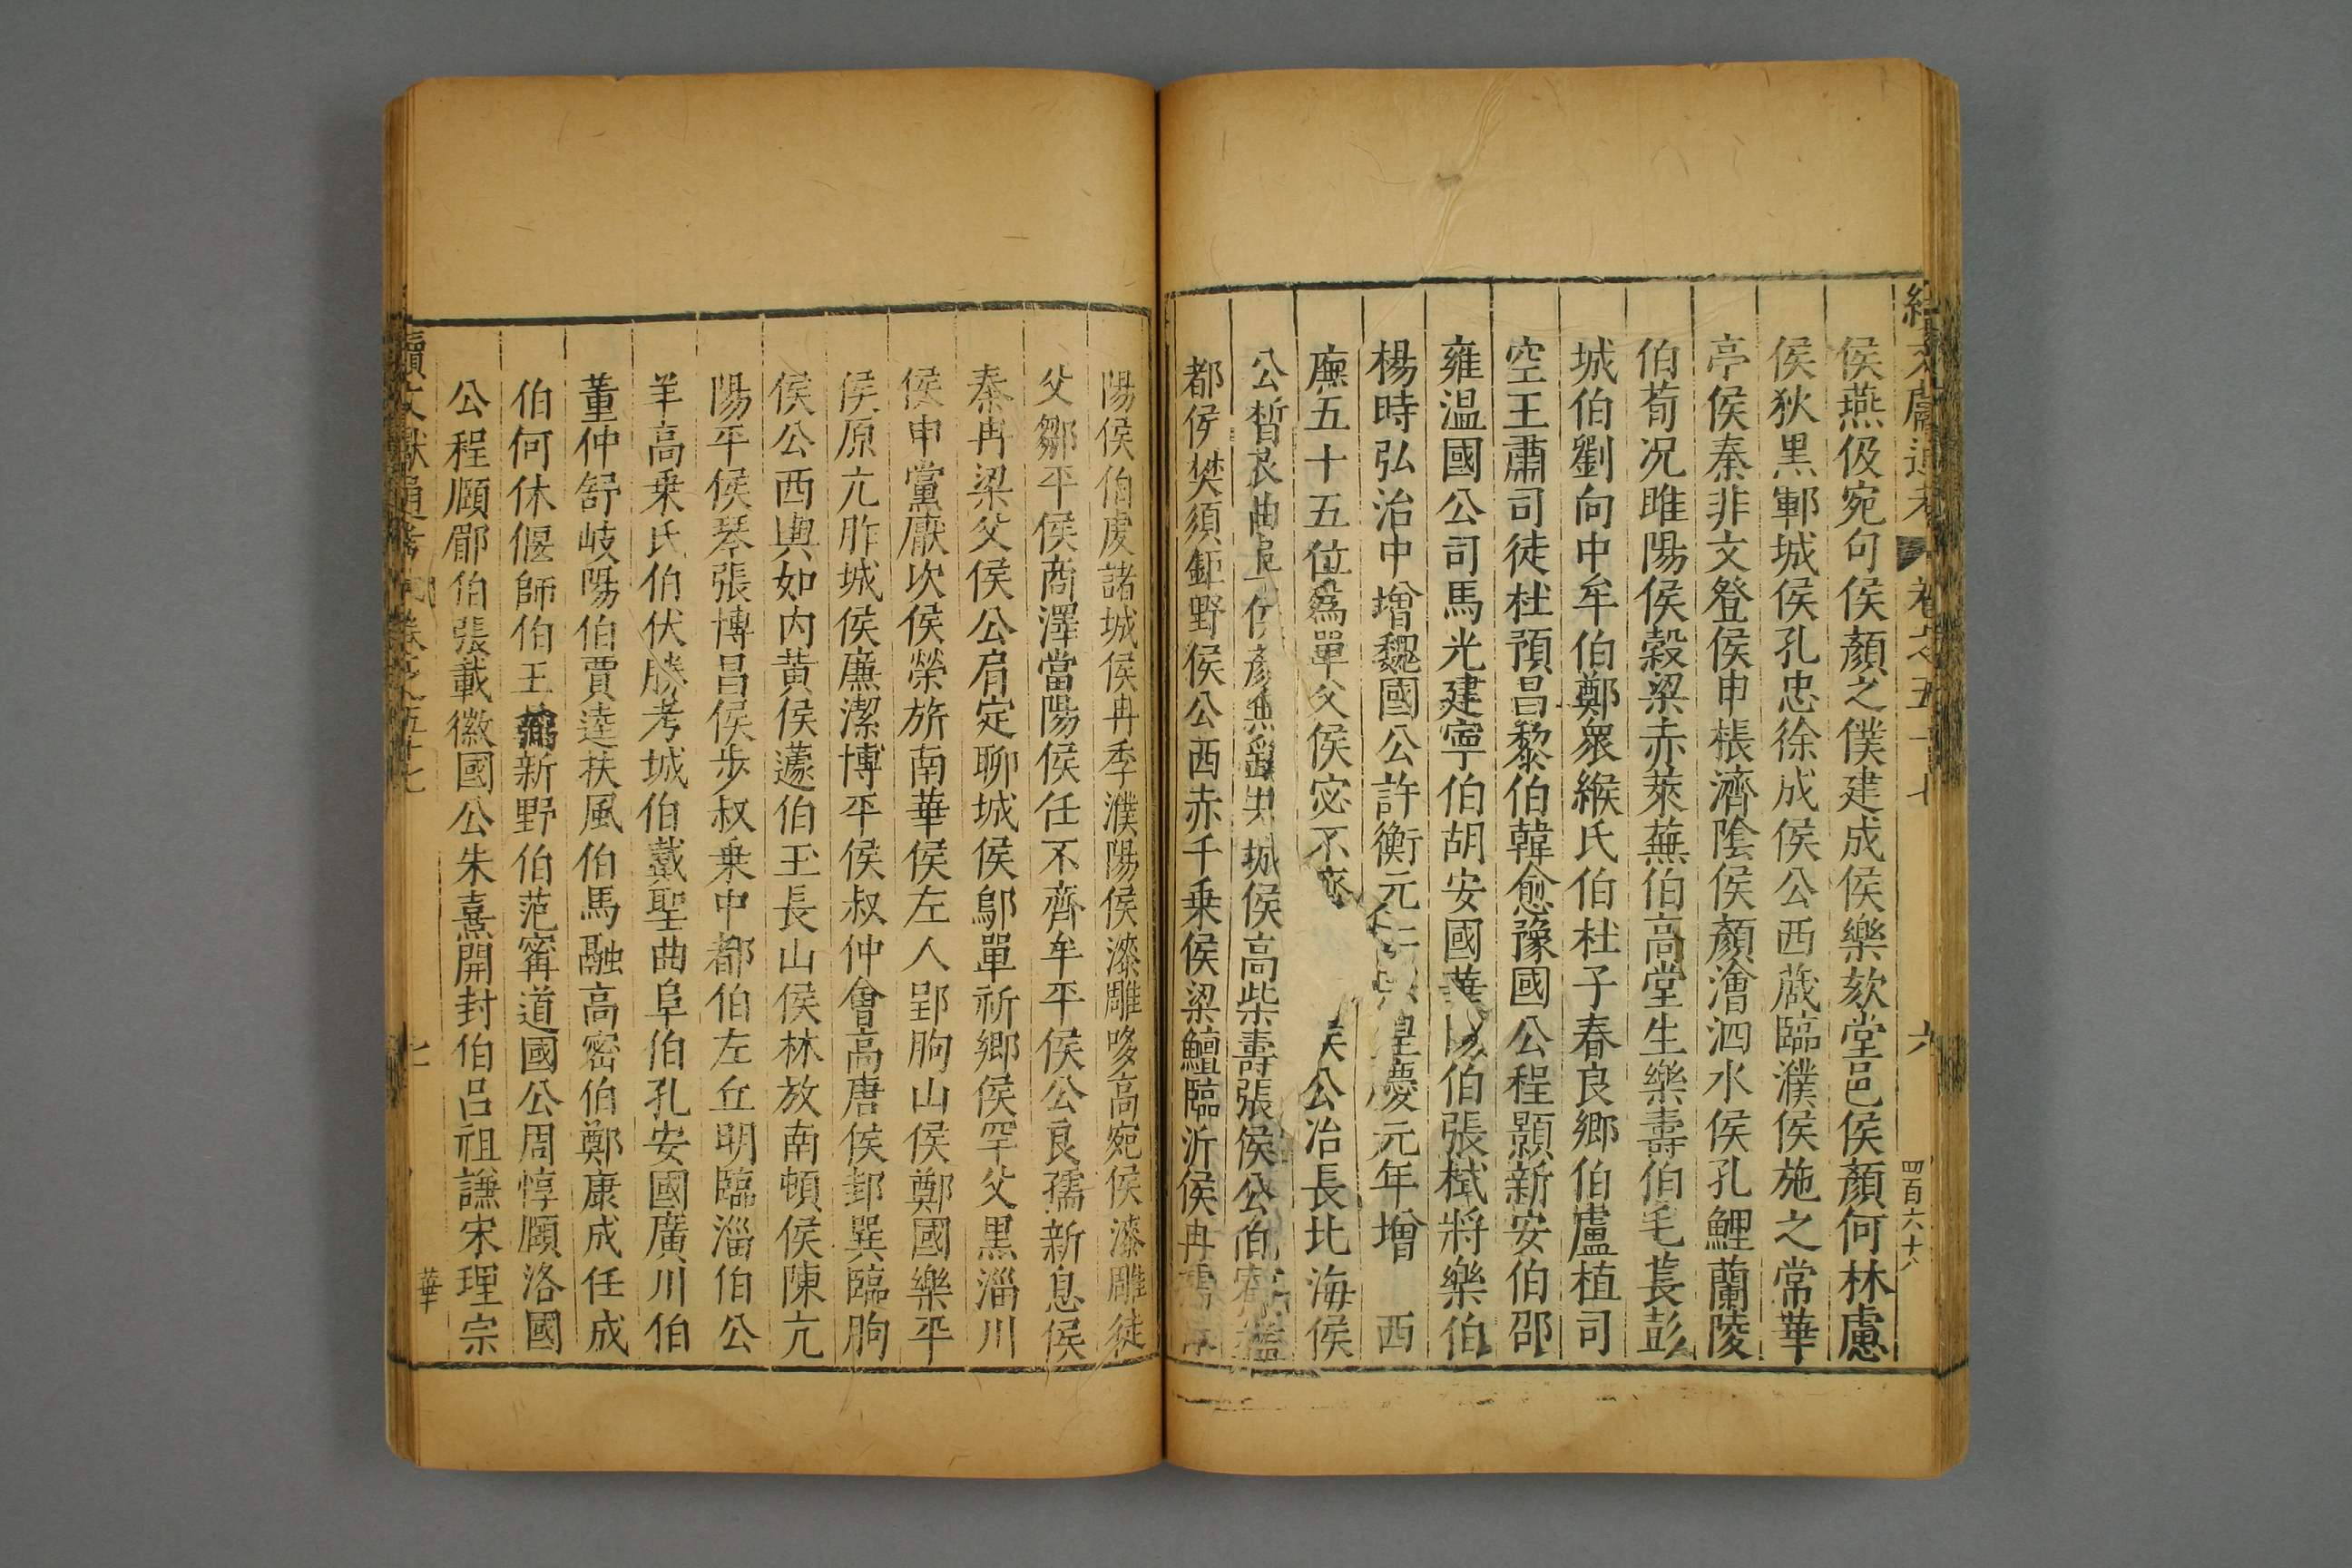 侯燕伋宛句侯顏之僕建成侯樂欬堂邑侯顏何林慮
侯狄黑鄆城侯孔忠徐成侯公西蒧臨濮侯施之常華
亭侯秦非文登侯申棖濟陰侯顏澮泗水侯孔鯉蘭陵
伯荀况睢陽侯穀梁赤萊蕪伯高堂生樂壽伯毛萇彭
城伯劉向中牟伯鄭衆緱氏伯杜子春良鄉伯盧植司
空王肅司徒杜預昌黎伯韓愈豫國公程顥新安伯邵
雍溫國公司馬光建寧伯胡安國華陽伯張栻將樂伯
楊時弘治中增魏國公許衡元皇慶元年增 西
廡五十五位爲單父侯宓不齊 侯公冶長北海侯
公晳哀曲阜侯顏無繇共城侯高柴壽張侯公伯寮益
都侯樊須鉅野侯公西赤千乗侯梁鱣臨沂侯冉孺
陽侯伯虔諸城侯冉季濮陽侯漆雕哆高宛侯漆雕徒
父鄒平侯商澤當陽侯任不齊牟平侯公良孺新息侯
秦冉梁父侯公肩定聊城侯鄔單祈鄉侯罕父黑淄川
侯申黨厭次侯榮旂南華侯左人郢朐山侯鄭國樂平
侯原亢胙城侯廉潔博平侯叔仲會高唐侯邽巽臨朐
侯公西輿如內黃侯蘧伯玉長山侯林放南頓侯陳亢
陽平侯琴張博昌侯步叔乗中都伯左丘明臨淄伯公
羊高乗氏伯伏勝考城伯戴聖曲阜伯孔安國廣川伯
董仲舒岐陽伯賈逵扶風伯馬融高密伯鄭康成任成
伯何休偃師伯王弼新野伯范寗道國公周惇頤洛國
公程頤郿伯張載徽國公朱熹開封伯呂祖謙宋理宗
續文獻通考 卷之五十七
七
華
六
四百六十八